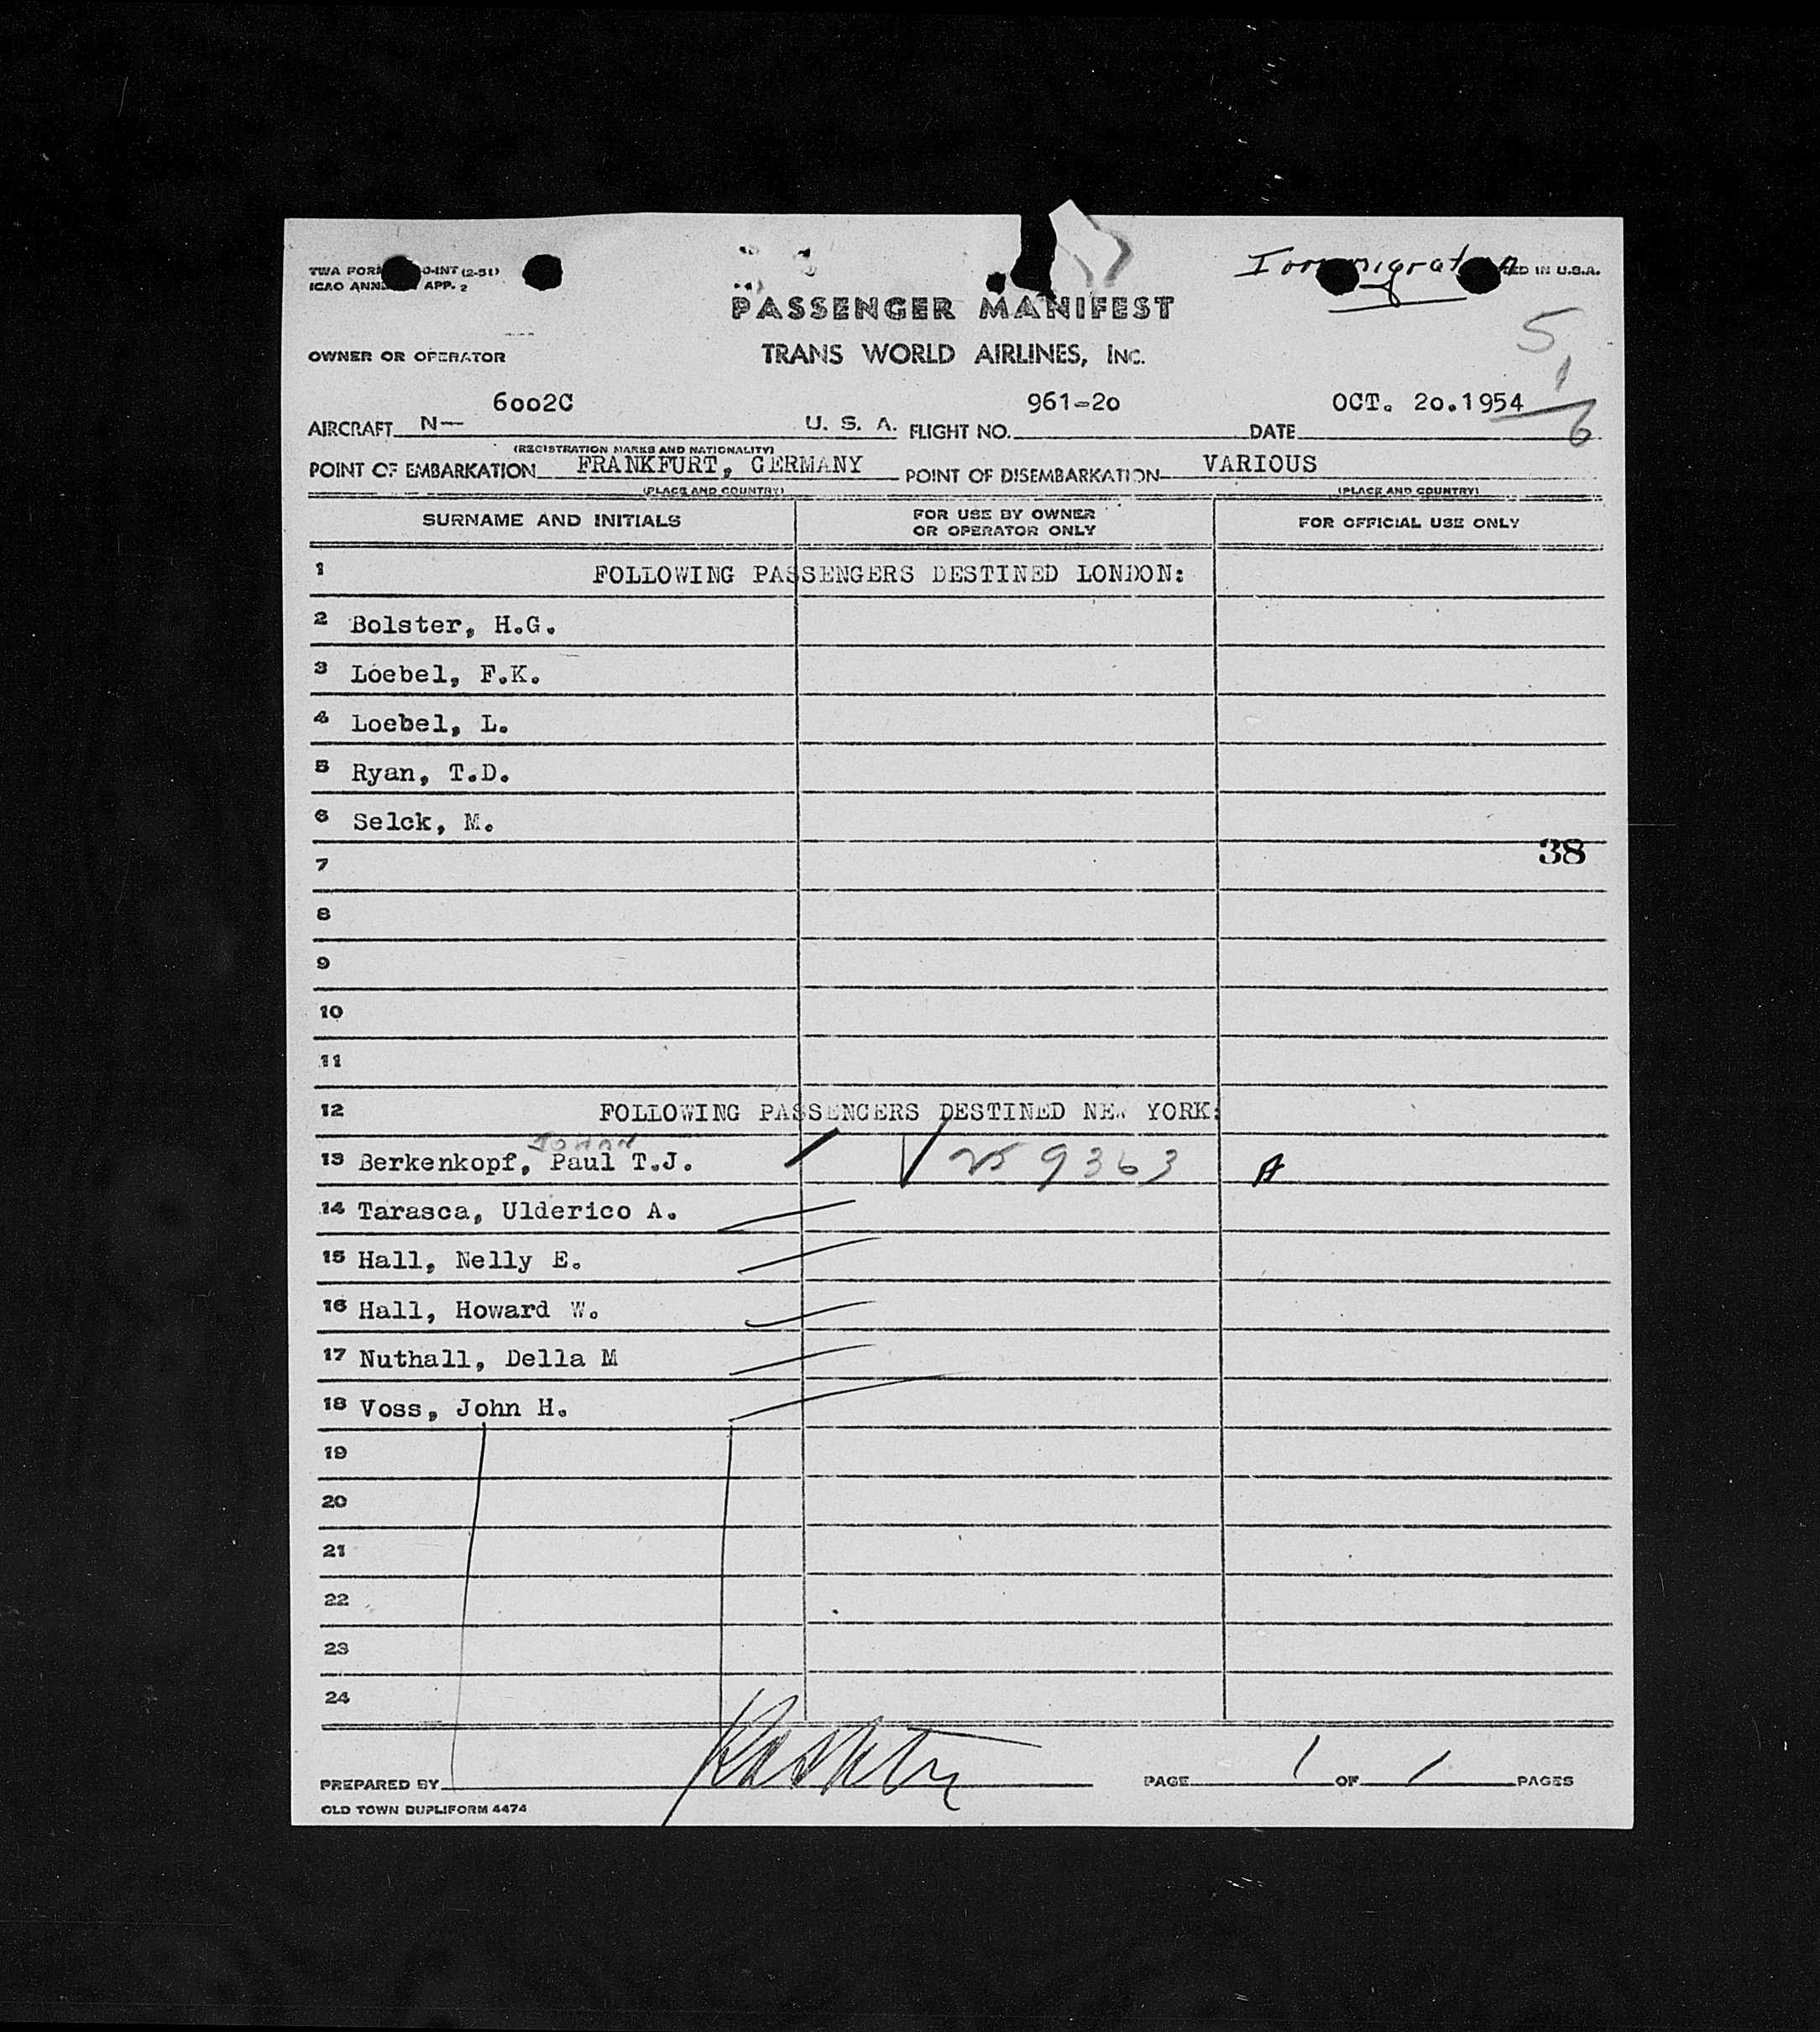 TWA FOR O-INT (2-51)
ICAO ANNE APP. 2
Immigration
ED IN U.S.A.
PASSENGER MANIFEST
OWNER OR OPERATOR TRANS WORLD AIRLINES, INC.
5
1
6
AIRCRAFT N- 6002C U. S. A. FLIGHT NO. 961-20 DATE OCT. 20.1954
(REGISTRATION MARKS AND NATIONALITY)
POINT OF EMBARKATION FRANKFURT, GERMANY POINT OF DISEMBARKATION VARIOUS
(PLACE AND COUNTRY) (PLACE AND COUNTRY)
SURNAME AND INITIALS FOR USE BY OWNER OR OPERATOR ONLY FOR OFFICIAL USE ONLY
1 FOLLOWING PASSENGERS DESTINED LONDON:
2 Bolster, H.G.
3 Loebel, F.K.
4 Loebel, L.
5 Ryan, T.D.
6 Selck, M.
38
7
8
9
10
11
12 FOLLOWING PASSENGERS DESTINED NEW YORK:
13 Berkenkopf, Paul T.J. 9363 A
14 Tarasca, Ulderico A.
15 Hall, Nelly E.
16 Hall, Howard W.
17 Nuthall, Della M
18 Voss, John H.
19
20
21
22
23
24
PREPARED BY PAGE 1 OF 1 PAGES
OLD TOWN DUPLIFORM 4474